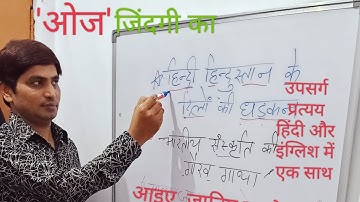 'ओज' जिंदगी का
हिन्दी हिन्दुस्तान के
दिलों की धड़कन
भारतीय संस्कृति की
गौरव गाथा
उपसर्ग
प्रत्यय
हिंदी और
इंग्लिश में
एक साथ
आइए